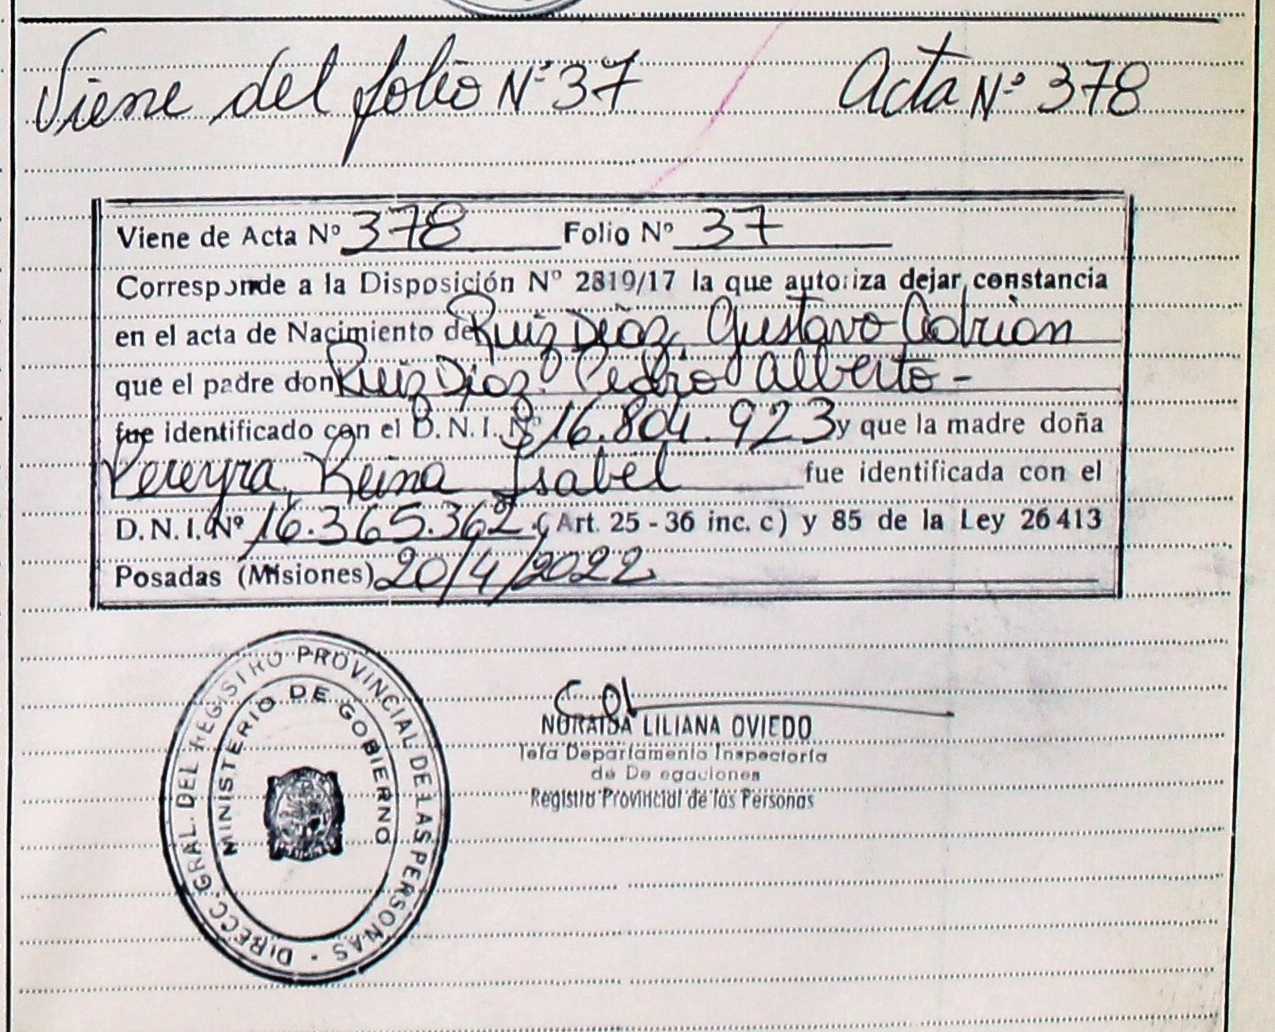 Viene del folio Nº 37 / Acta Nº 378
Viene de Acta Nº 378 Folio Nº 37
Corresponde a la Disposición Nº 2819/17 la que autoriza dejar constancia
en el acta de Nacimiento de Ruiz Díaz, Gustavo Adrian
que el padre don Ruiz Díaz, Pedro Alberto -
fue identificado con el D. N. I. Nº 16.804.923 y que la madre doña
Pereyra, Reina Isabel fue identificada con el
D. N. I. Nº 16.365.362 ( Art. 25 - 36 inc. c) y 85 de la Ley 26413
Posadas (Misiones) 20/4/2022
DIRECC. GRAL. DEL REGISTRO PROVINCIAL DE LAS PERSONAS -
MINISTERIO DE GOBIERNO
NORAIDA LILIANA OVIEDO
Jefa Departamento Inspectoría
de Delegaciones
Registro Provincial de las Personas